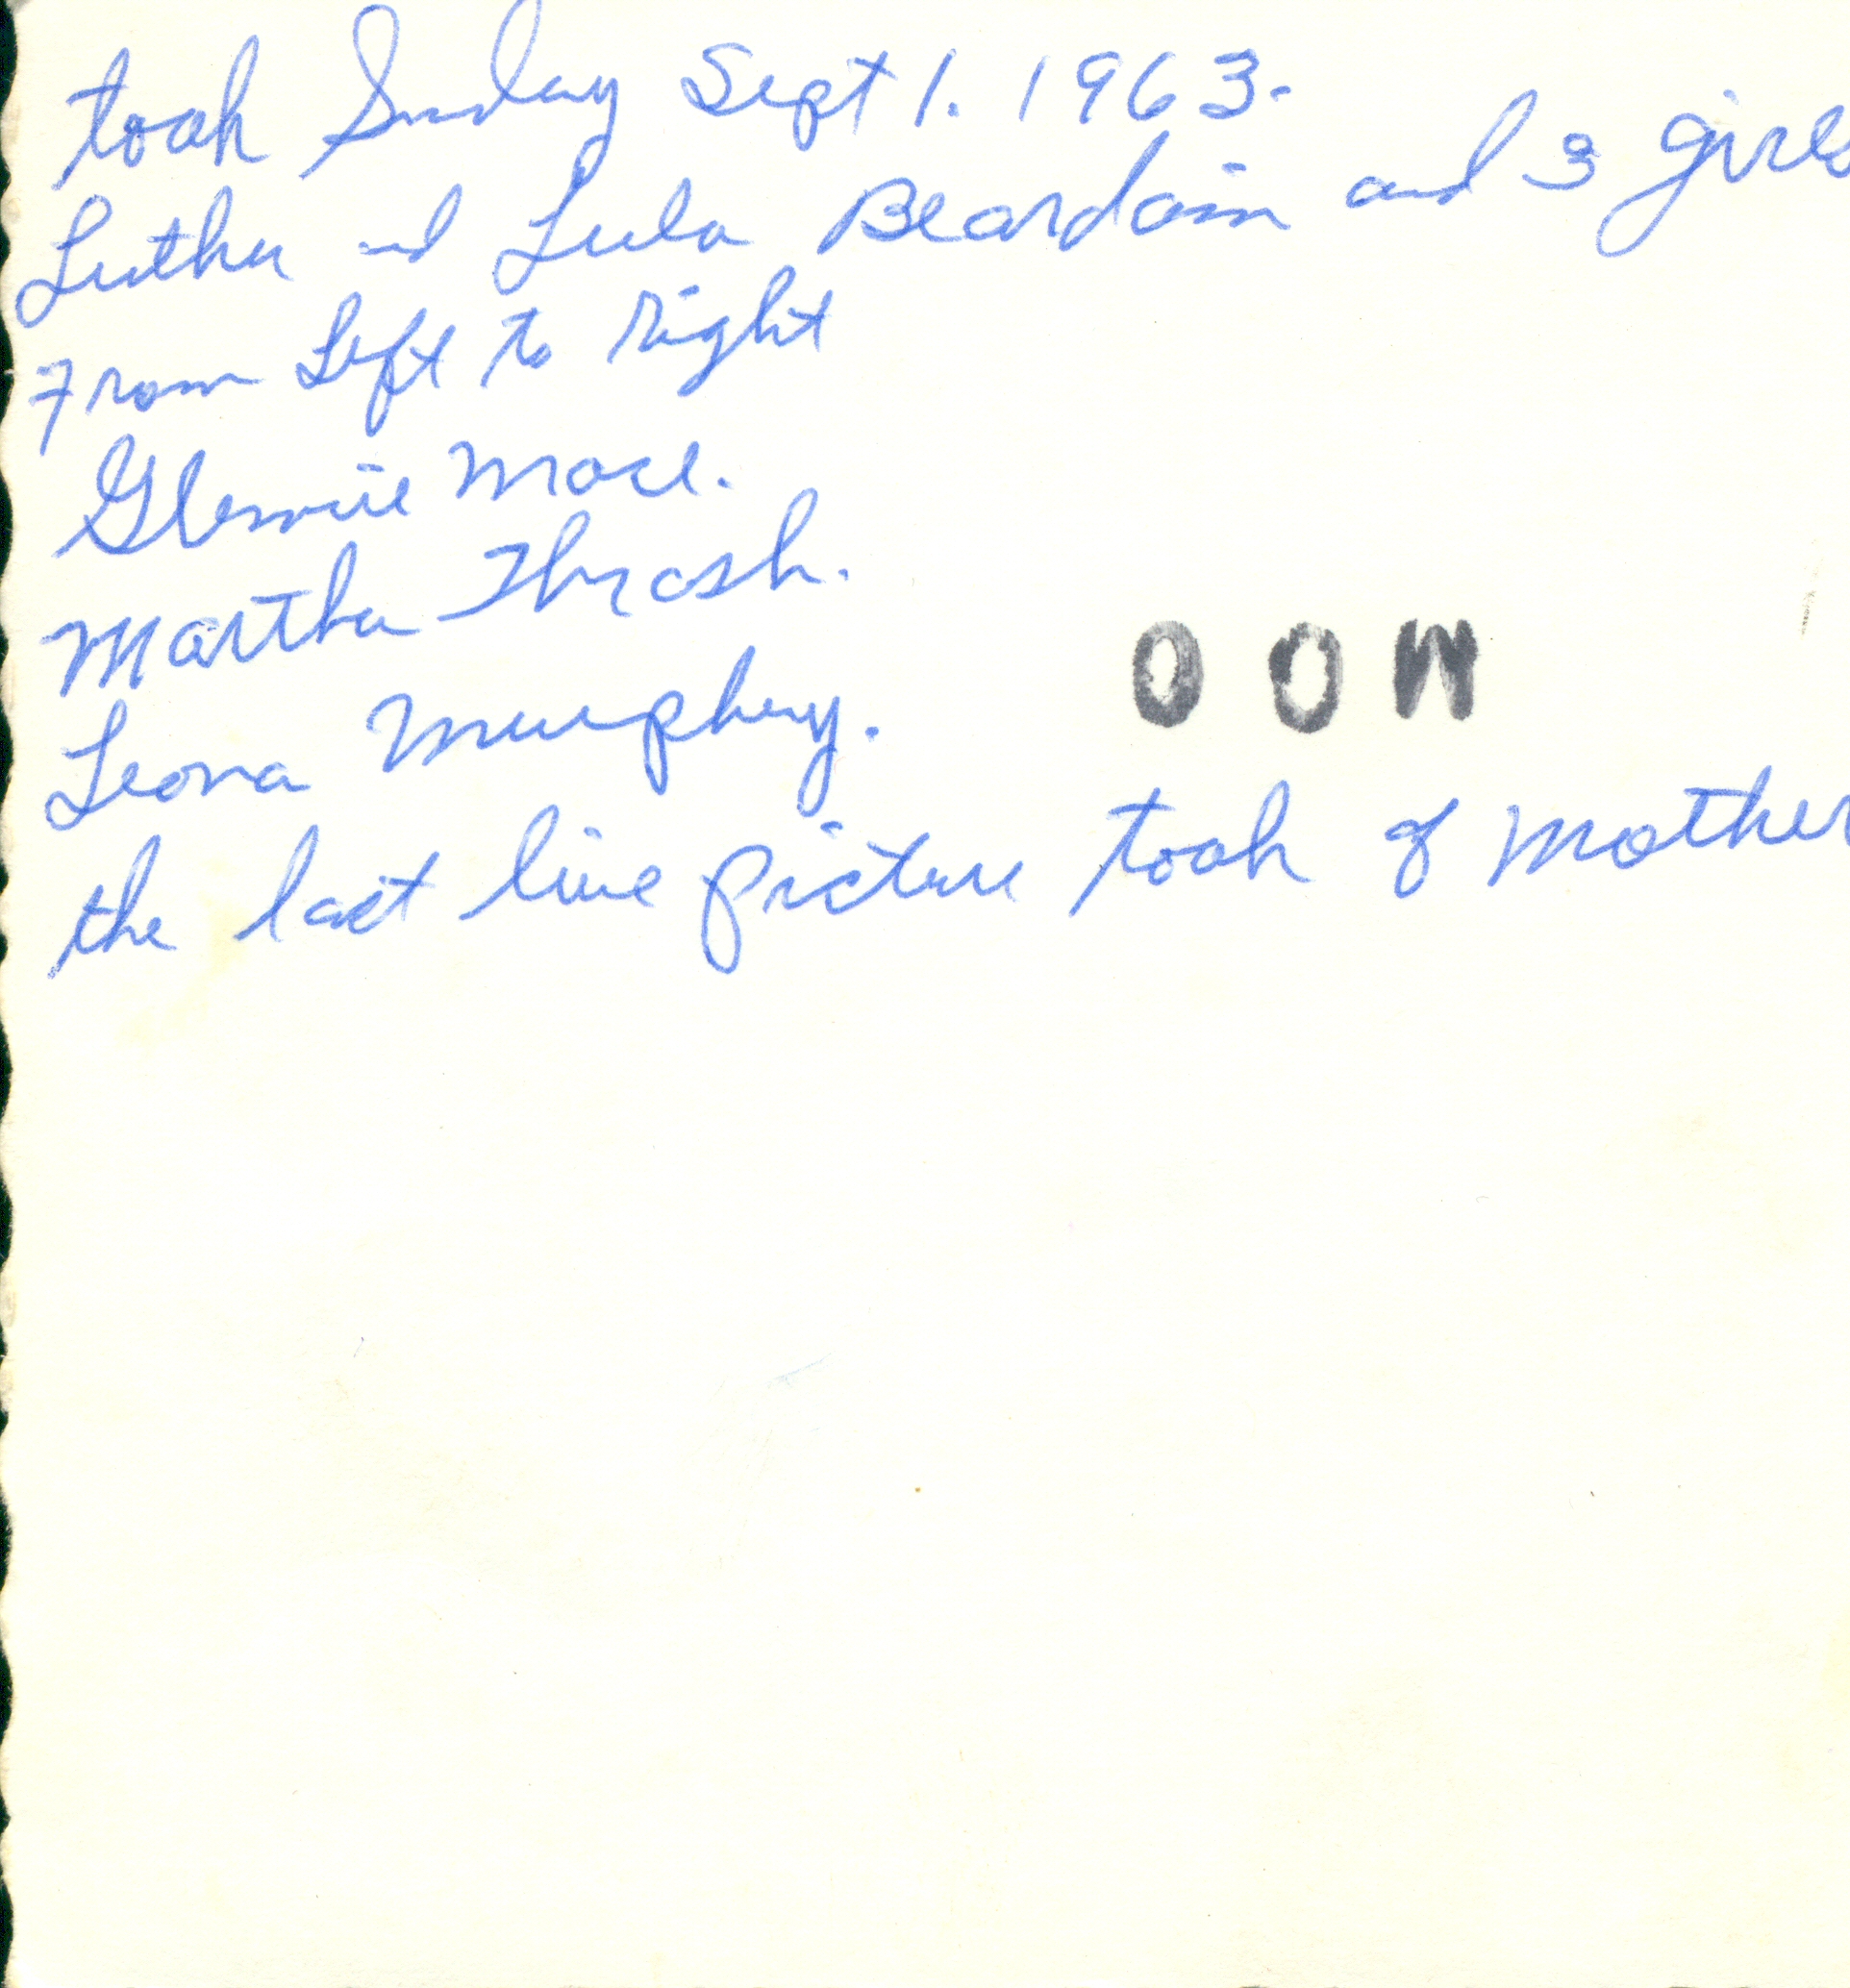 took Sunday Sept 1. 1963.
Luther and Lula Beardain and 3 girls
From Left to right
Glennie Mace.
Martha Thrash.
Leona Murphey.
OOW
the last live picture took of Mother